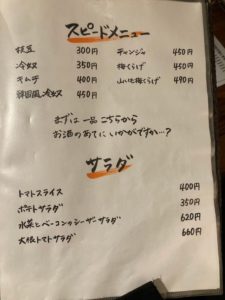 スピードメニュー
枝豆 300円
冷奴 350円
キムチ 400円
韓国風冷奴 450円
チャンジャ 450円
梅くらげ 450円
山いも梅くらげ 490円
まずは一品こちらから
お酒のあてにいかがですか…?
サラダ
トマトスライス 400円
ポテトサラダ 350円
水菜とベーコンのシーザーサラダ 620円
大根トマトサラダ 660円